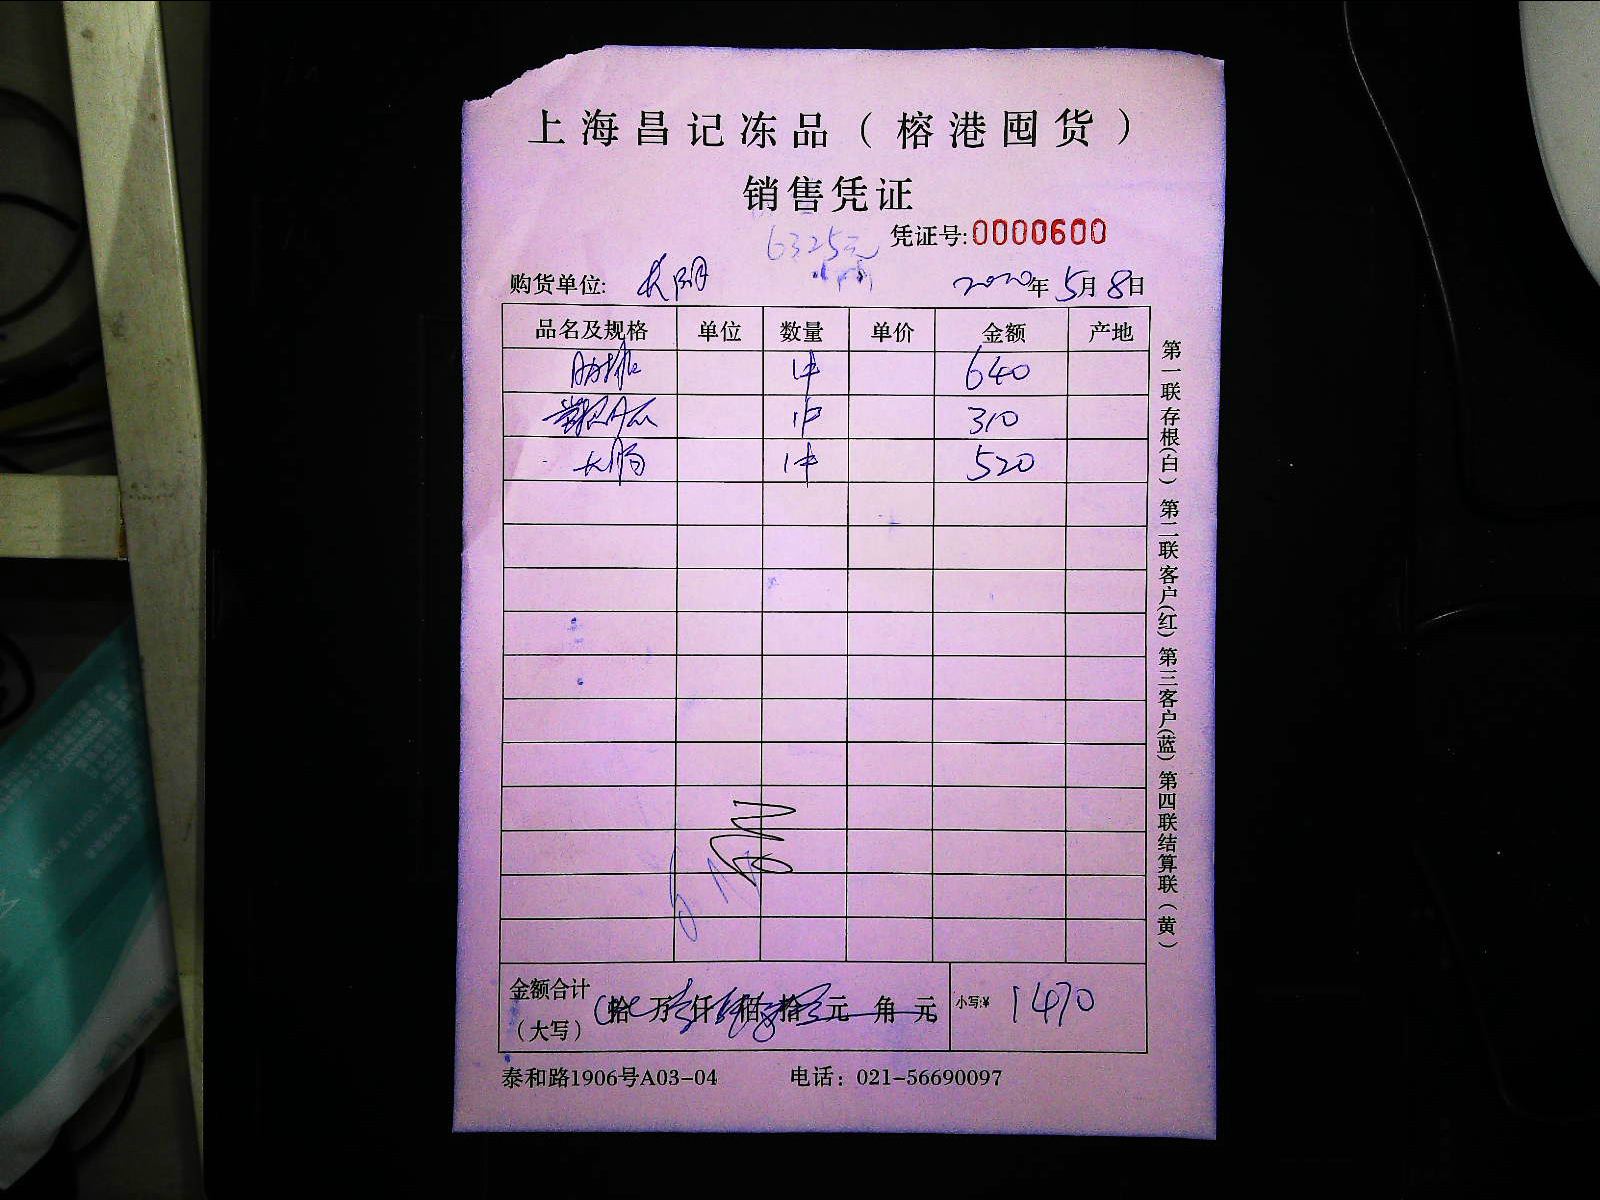 上海昌记冻品（榕港囤货）
销售凭证
6325元
凭证号:0000600
购货单位:
2020年5月8日
品名及规格 单位 数量 单价 金额 产地
1件 640
1件 310
大肠 1件 520
金额合计（大写） 拾 万 仟 佰 拾 元 角 元 小写:¥ 1470
泰和路1906号A03-04 电话：021-56690097
第一联存根(白) 第二联客户(红) 第三客户(蓝) 第四联结算联（黄）